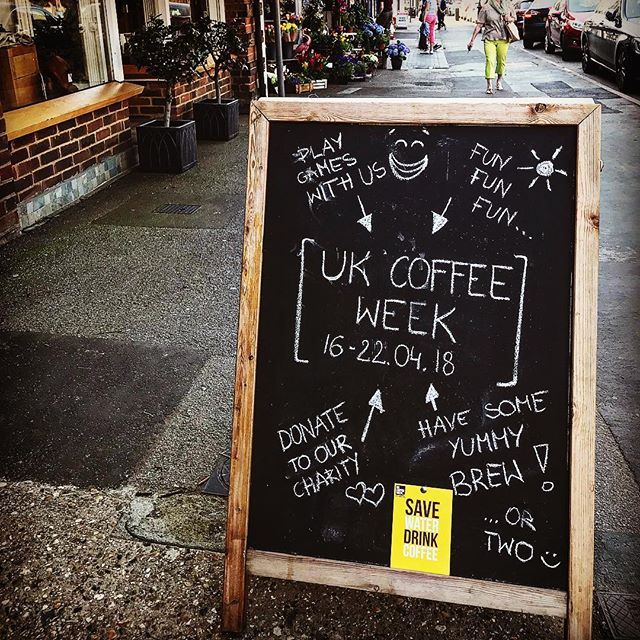 PLAY
GAMES
WITH US
FUN
FUN
FUN...
UK COFFEE
WEEK
16-22.04.18
DONATE
TO OUR
CHARITY
HAVE SOME
YUMMY
BREW!
...OR
TWO
SAVE
WATER
DRINK
COFFEE